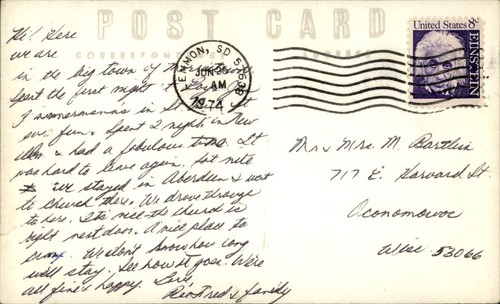 POST CARD
CORRESPONDENCE
Hi! Here
we are
in the big town of
Spent the first night
Zimmermann's in St.
fun. Spent 2 nights in New
Ulm & had a fabulous time. It
was hard to leave again. Sat nite
we stayed in Aberdeen & went
to church there. We drove through
to here. It's nice the church is
right next door. A nice place to
We don't know how long
we'll stay. See how it goes. We're
all fine & happy. Love,
& family
LEMMON, SD 57638
JUN 25
AM
1974
United States 8c
EINSTEIN
Mr & Mrs. M. Bartlein
717 E. Harvard St.
Oconomowoc
Wisc 53066